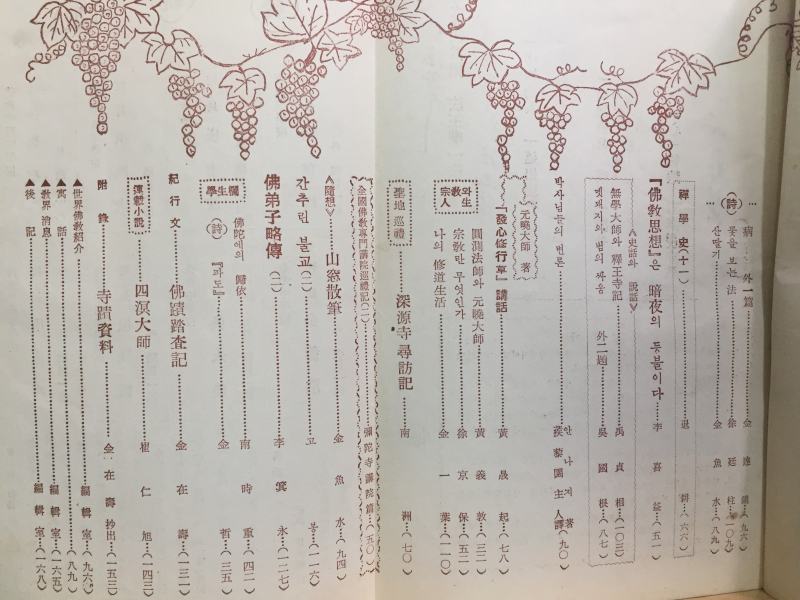 病……外一篇……金達鎭…(九六)
(詩) 꽃을 보는 法……徐廷柱…(一〇九)
산딸기……金魚水…(八九)
禪學史(十一)……退耕…(六六)
『佛敎思想』은 暗夜의 등불이다……李喜益…(五一)
《史話와 說話》
無學大師와 釋王寺記……禹貞相…(一〇三)
멧돼지와 범의 싸움 外二題……吳國根…(八七)
박사님들의 변론……안나지著 漢藜園主人譯(九〇)
元曉大師 著
『發心修行章』講話……黃晟起…(七八)
宗敎와 人生
圓測法師와 元曉大師……黃義敦…(三二)
宗敎란 무엇인가……徐京保…(五二)
나의 修道生活……金一葉…(一一〇)
聖地巡禮
深源寺尋訪記……南洲…(七〇)
全國佛敎專門講院巡禮記(二)……彌陀寺講院篇…(五〇)
《隨想》 山窓散筆……金魚水…(九四)
간추린 불교(二)……고봉…(一一六)
佛弟子略傳(二)……李箕永…(一二七)
學生欄
佛陀에의 歸依……南時重…(四二)
(詩) 『파도』……金哲…(三五)
紀行文 佛蹟踏査記……金在壽…(一三一)
連載小說 四溟大師……崔仁旭…(一四三)
附錄 寺蹟資料……金在壽抄出…(一五三)
▲世界佛敎紹介……編輯室…(九六)
▲寓話……(八九)
▲敎界消息……編輯室…(一六五)
▲後記……編輯室…(一六八)